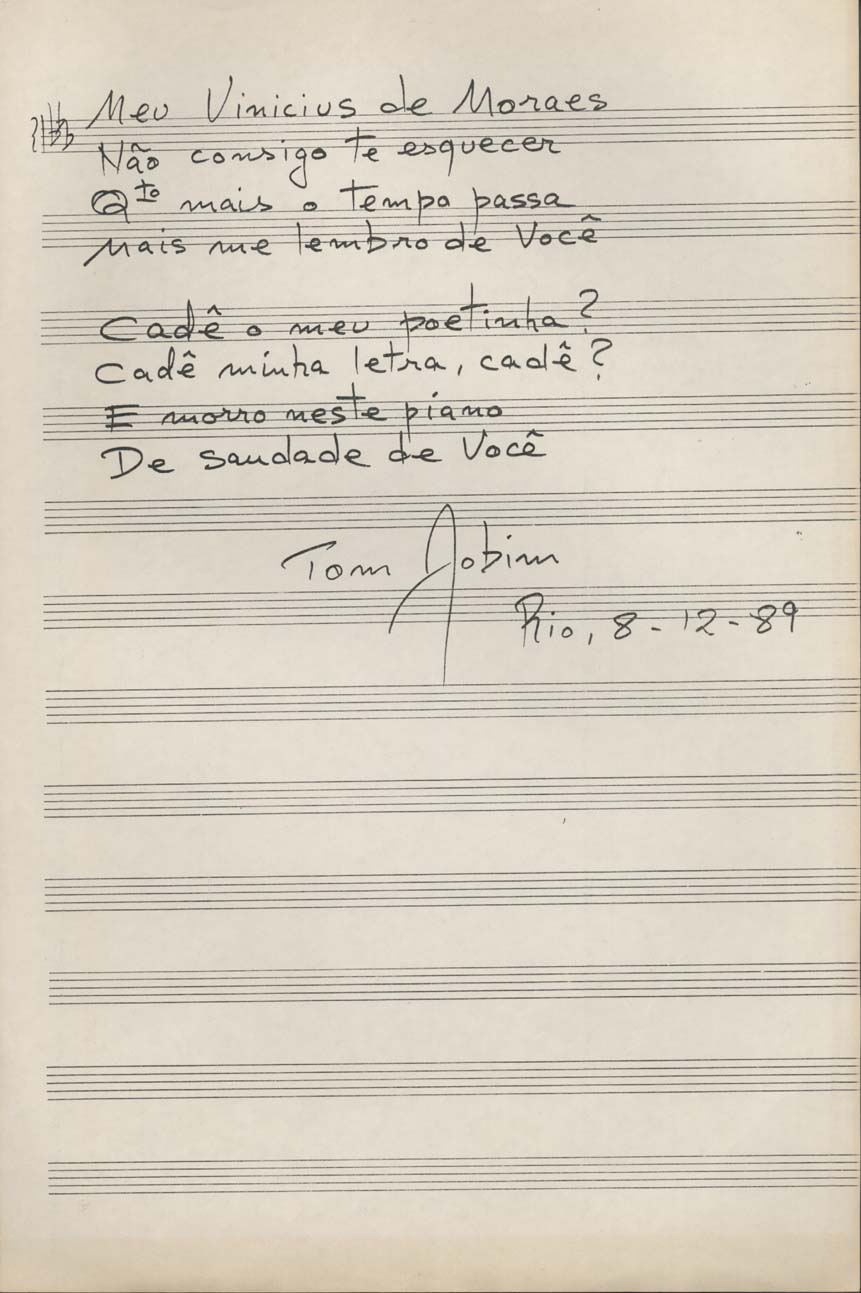 Meu Vinicius de Moraes
Não consigo te esquecer
Qto mais o tempo passa
Mais me lembro de Você
Cadê o meu poetinha?
Cadê minha letra, cadê?
E morro neste piano
De saudade de Você
Tom Jobim
Rio, 8-12-89